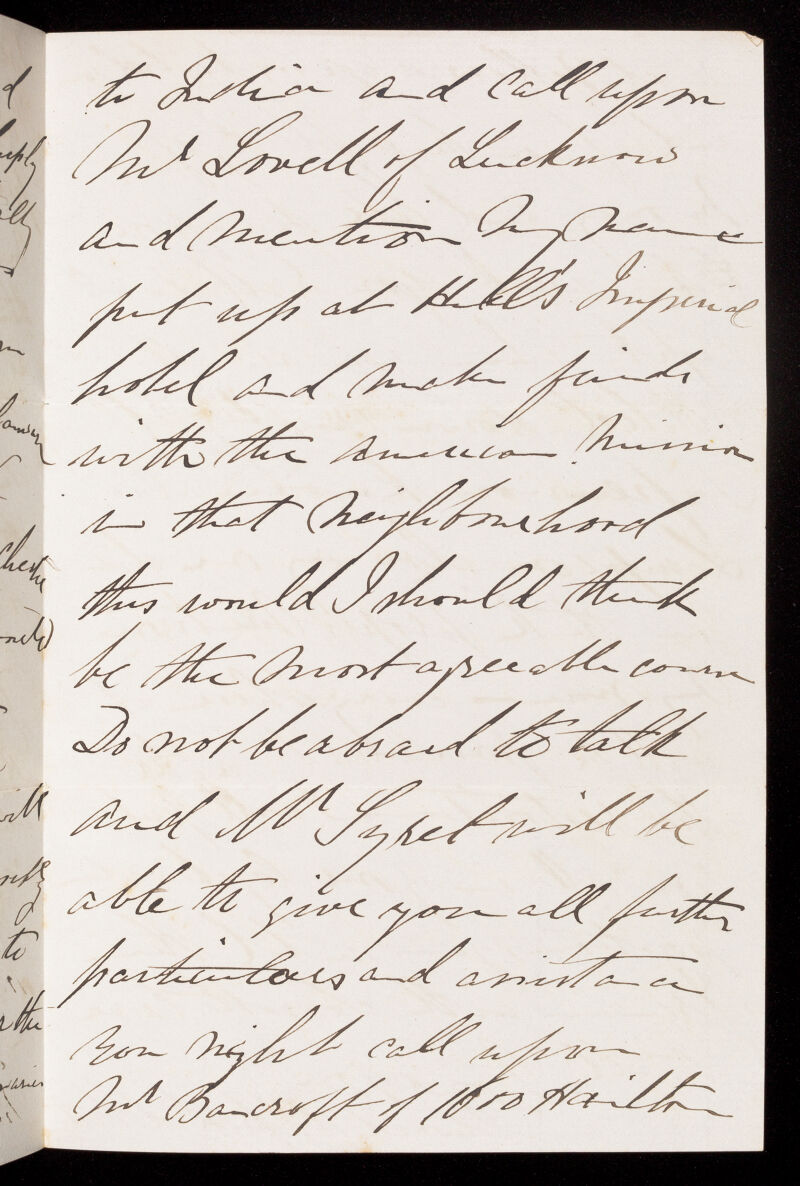 to India and call upon
Mr Lovell of Lucknow
and mention my name
put up at Hill's Imperial
hotel and make friends
with the american mission
in that neighbourhood
this would I should think
be the most agreeable course
Do not be abraid to talk
and Mr Syret will be
able to give you all further
particulars and assistance
You might call upon
Mr Bancroft of Hamilton